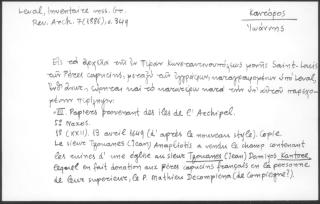 Laval, Inventaire mss. Gr.
Rev. Arch. 7 (1886), σ. 349
Καντόρος
Ἰωάννης
Εἰς τὰ ἀρχεῖα τῆς ἐν Πέραν Κωνσταντινουπόλεως μονῆς Saint-Louis
τῶν Pères capucins, μεταξὺ τῶν ἐγγράφων καταγραφομένων ὑπὸ Laval,
καὶ τὸ κατωτέρω κατὰ τὴν ὑπ' αὐτοῦ
περίληψιν:
"III. Papiers provenant des îles de l'Archipel.
5º Naxos.
(XXII). 13 avril 1649 (d'après le nouveau style). Copie.
Le sieur Tzouanes (Jean) Anapliotis a vendu le champ contenant
les ruines d'une église au sieur Tzouanes (Jean) Domiros Kantore
lequel en fait donation aux Pères capucins français en la personne
de leur supérieur, le P. Mathieu Decompiena (de Compiègne?).